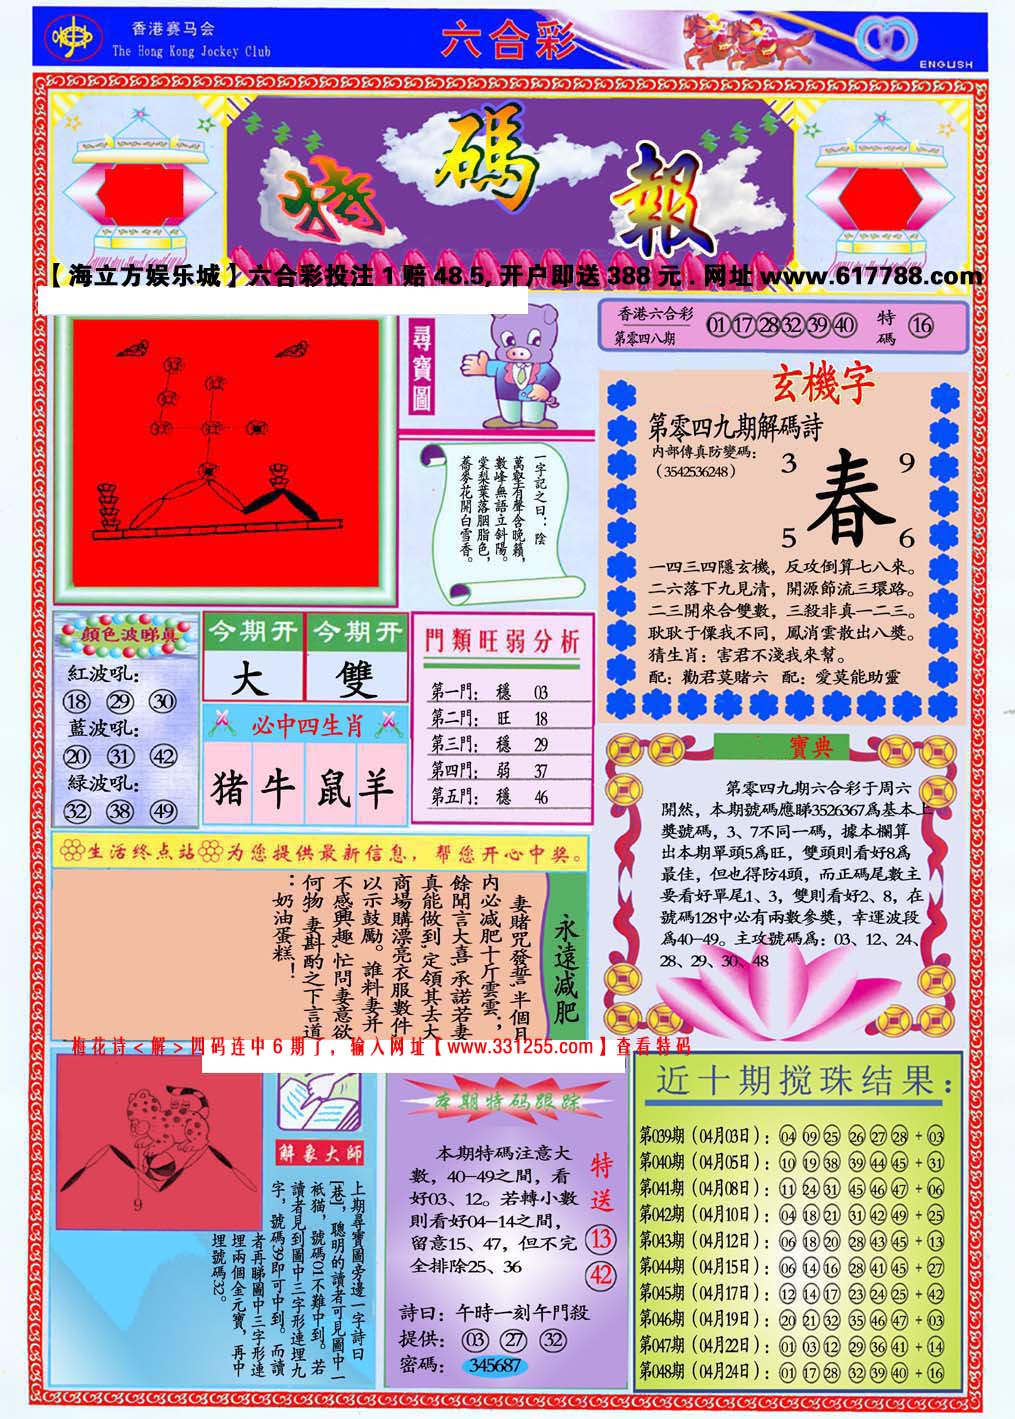 香港赛马会
The Hong Kong Jockey Club
六合彩
ENGLISH
特碼報
【海立方娱乐城】六合彩投注1赔48.5,开户即送388元.网址www.617788.com
尋寶圖
香港六合彩
第零四八期
01 17 28 32 39 40
特碼
16
一字記之曰：陰
萬壑有聲含晚籟，
數峰無語立斜陽。
棠梨葉落胭脂色，
蕎麥花開白雪香。
玄機字
第零四九期解碼詩
內部傳真防變碼：
（3542536248）
3 9
春
5 6
一四三四隱玄機，反攻倒算七八來。
二六落下九見清，開源節流三環路。
二三開來合雙數，三殺非真一二三。
耿耿于懷我不同，鳳消雲散出八獎。
猜生肖：害君不淺我來幫。
配：勸君莫賭六 配：愛莫能助靈
顏色波睇真
紅波吼：
18 29 30
藍波吼：
20 31 42
緑波吼：
32 38 49
今期开 今期开
大 雙
必中四生肖
猪 牛 鼠 羊
門類旺弱分析
第一門： 穩 03
第二門： 旺 18
第三門： 穩 29
第四門： 弱 37
第五門： 穩 46
寶典
第零四九期六合彩于周六
開然，本期號碼應睇3526367爲基本上
獎號碼，3、7不同一碼，據本欄算
出本期單頭5爲旺，雙頭則看好8爲
最佳，但也得防4頭，而正碼尾數主
要看好單尾1、3，雙則看好2、8，在
號碼128中必有兩數參獎，幸運波段
爲40-49。主攻號碼爲：03、12、24、
28、29、30、48
生活终点站 为您提供最新信息，帮您开心中奖。
永遠減肥
妻賭咒發誓，半個月
内必减肥十斤雲雲；
餘聞言大喜，承諾若妻
真能做到，定領其去大
商場購漂亮衣服數件
以示鼓勵。誰料妻并
不感興趣，忙問妻意欲
何物，妻斟酌之下言道
：奶油蛋糕！
梅花诗<解>四码连中6期了，输入网址【www.331255.com】查看特码
9
解象大師
上期尋寶圖旁邊一字詩曰
[巷]，聰明的讀者可見圖中一
衹猫，號碼01不難中到。若
讀者見到圖中三字形連埋九
字，號碼39即可中到。而讀
者再睇圖中三字形連
埋兩個金元寶，再中
埋號碼32。
本期特码跟踪
本期特碼注意大
數，40-49之間，看
好03、12。若轉小數
則看好04-14之間，
留意15、47，但不完
全排除25、36
特送
13
42
詩曰：午時一刻午門殺
提供： 03 27 32
密碼： 345687
近十期搅珠结果：
第039期（04月03日）：04 09 25 26 27 28 + 03
第040期（04月05日）：10 19 38 39 44 45 + 31
第041期（04月08日）：11 24 31 45 46 47 + 06
第042期（04月10日）：04 18 21 31 42 49 + 25
第043期（04月12日）：06 18 20 28 43 45 + 13
第044期（04月15日）：06 14 16 28 41 45 + 27
第045期（04月17日）：12 14 17 23 24 25 + 42
第046期（04月19日）：20 21 32 35 46 47 + 03
第047期（04月22日）：01 03 12 29 36 41 + 14
第048期（04月24日）：01 17 28 32 39 40 + 16